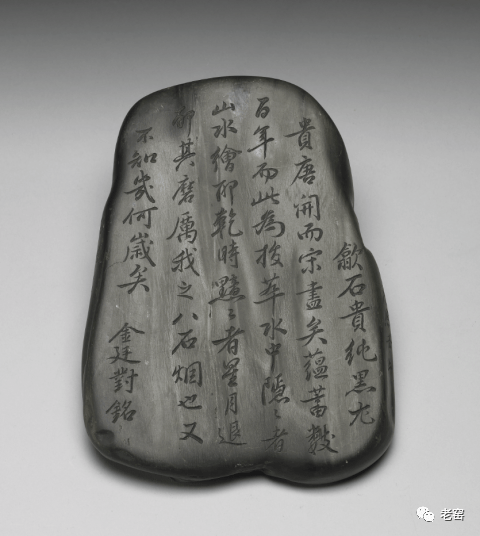 歙石貴純黑尤
貴唐開而宋盡矣蘊蓄數
百年而此為拔萃水中隱〻者
山水繪抑乾時黯〻者星月退
抑其磨厲我之八石烟也又
不知幾何歲矣
金廷對銘
老窑